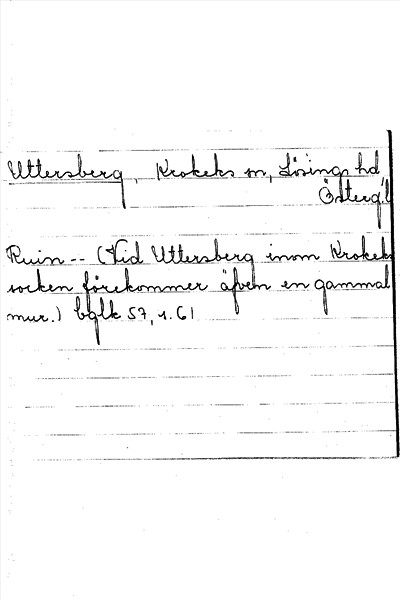 Uttersberg, Krokeks sn, Lösings hd,
Österg'l
Ruin -- (Vid Uttersberg inom Krokeks
socken förekommer äfven en gammal
mur.) bglk 57, s. 61